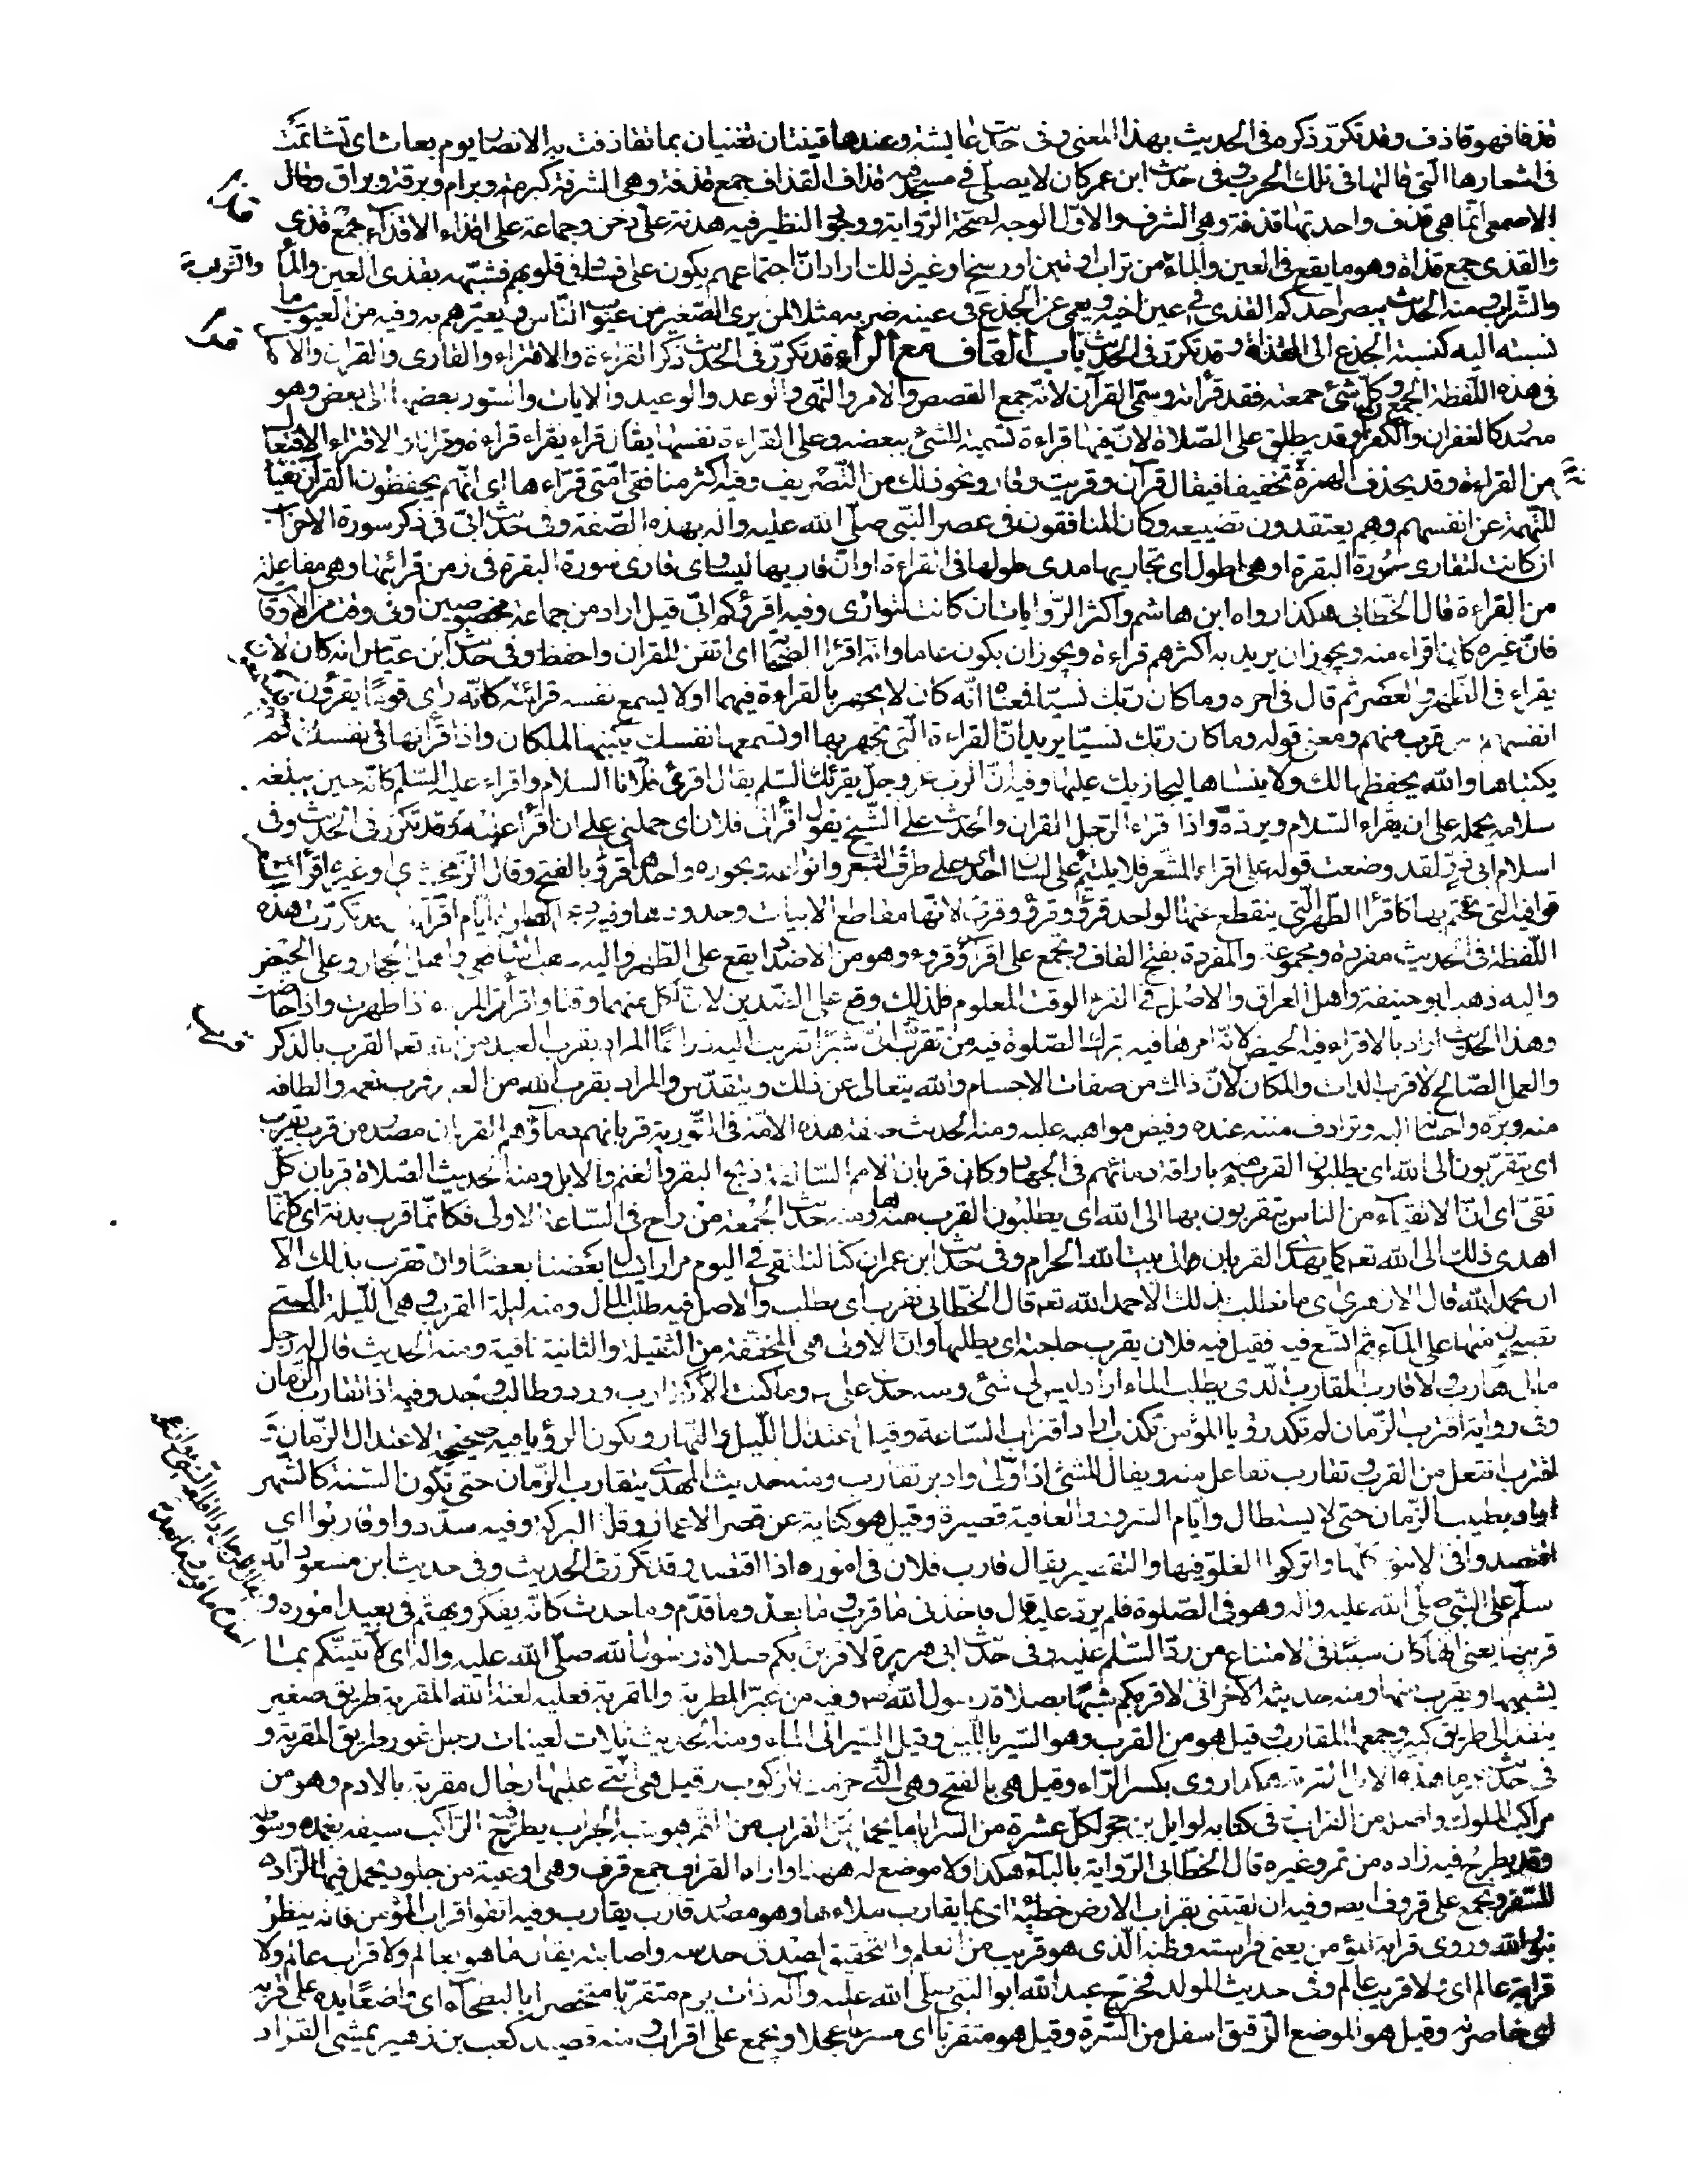 قذفا فهو قاذف وقد تكرّر ذكره فى الحديث بهذا المعنى وفى حديث عايشة وعندها قينتان تغنيان بما تقاذفت به الانصار يوم بعاث اى تشاتمت
فى اشعارها التى قالتها فى تلك الحرب وفى حديث ابن عمر كان لا يصلّى فى مسجد فيه قذاف القذاف جمع قذفة وهى الشرفة كبرمة وبرام وبرقة وبراق وقال
الاصمعى انّما هى قذف واحدتها قذفة وهى الشرف والاوّل الوجه لصحّة الرّواية ووجود النظير فيه هدنة على دخن وجماعة على اقذاء الاقذاء جمع قذى
والقذى جمع قذاة وهو ما يقع فى العين والماء من تراب او تبن او وسخ او غير ذلك اراد انّ اجتماعهم يكون على فساد فى قلوبهم فشبّهه بقذى العين والماء
والشّراب ومنه الحديث يبصر احدكم القذى فى عين اخيه ويعمى عن الجذع فى عينه ضربه مثلا لمن يرى الصّغير من عيوب النّاس ويعيّرهم به وفيه من العيوب ما
نسبته اليه كنسبة الجذع الى القذاة وقد تكرّر فى الحديث باب القاف مع الراء قد تكرّر فى الحديث ذكر القراءة والاقتراء والقارى والقران والاصل
فى هذه اللّفظة الجمع وكلّ شئ جمعته فقد قرأته وسمّى القرآن لانّه جمع القصص والامر والنّهى والوعد والوعيد والايات والسّور بعضها الى بعض وهو
مصدر كالغفران والكفران وقد يطلق على الصّلاة لانّ فيها قراءة تسمية للشئ ببعضه وعلى القراءة نفسها يقال قراء يقراء قراءة وقرانا والاقتراء الافتعال
من القراءة وقد يحذف الهمزة تخفيفا فيقال قرآن وقريت وقار ونحو ذلك من التّصريف وفيه اكثر منافقى امّتى قرّاءها اى انّهم يحفظون القرآن نفيا
للتّهمة عن انفسهم وهم يعتقدون تضييعه وكان المنافقون فى عصر النّبى صلّى الله عليه واله بهذه الصّفة وفى حديث ابىّ فى ذكر سورة الاحزاب
ان كانت لتقارى سورة البقرة او هى اطول اى تجاريها مدى طولها فى القراءة او انّ قاريها ليساوى قارى سورة البقرة فى زمن قرائتها وهى مفاعلة
من القراءة قال الخطّابى هكذا رواه ابن هاشم واكثر الرّوايات ان كانت لتوازى وفيه اقرؤكم ابىّ قيل اراد من جماعة مخصوصين او فى وقت من الاوقات
فانّ غيره كان اقراء منه ويجوز ان يريد به اكثرهم قراءة ويجوز ان يكون عاما وانّه اقرأ الصّحابة اى اتقن للقران واحفظ وفى حديث ابن عبّاس انه كان لا
يقراء فى الظّهر والعصر ثم قال فى اخره وما كان ربّك نسيّا معناه انّه كان لا يجهر بالقراءة فيهما او لا يسمع نفسه قرائته كانّه راى قوما يقرؤن
انفسهم ومن قرب منهم ومعنى قوله وما كان ربّك نسيّا يريد انّ القراءة الّتى تجهر بها او تسمعها نفسك يكتبها الملكان واذا قرأتها فى نفسك لم
يكتباها والله يحفظها لك ولا ينساها ليجازيك عليها وفيه انّ الرب عز وجل يقرئك السّلم يقال اقرئ فلانا السلام واقراء عليه السّلم كانّه حين يبلغه
سلامه يحمله على ان يقراء السّلام ويردّه واذا قراء الرّجل القران والحديث على الشّيخ يقول اقرأنى فلان اى حملنى على ان اقرأ عليه وقد تكرر فى الحديث وفى
اسلام ابى ذرّ لقد وضعت قوله على اقراء الشّعر فلا يلتئم على لسان احد اى على طرق الشعر وانواعه وبحوره واحدها قرؤ بالفتح وقال الزّمخشرى وغيره اقراء الشعر
قوافيه التى يختم بها كاقرأ الطّهر الّتى ينقطع عندها الواحد قرؤ وقرؤ وقرئ لانّها مقاطع الابيات وحدودها وفيه دعى الصلوة ايّام اقرآئك قد تكرّرت هذه
اللّفظة فى الحديث مفردة ومجموعة والمفردة بفتح القاف وتجمع على اقراء وقروء وهو من الاضداد يقع على الطّهر واليه ذهب الشافعى واهل الحجاز وعلى الحيض
واليه ذهب ابو حنيفة واهل العراق والاصل فى القرء الوقت المعلوم فلذلك وقع على الضّدين لانّ لكل منهما وقتا واقرأت المرءة اذا طهرت واذا حاضت
وهذا الحديث اراد بالاقراء فيه الحيض لانّه امرها فيه بترك الصّلوة فيه من تقرّب الىّ شبرا تقربت اليه ذراعًا المراد بقرب العبد من الله تعم القرب بالذكر
والعمل الصّالح لا قرب الذات والمكان لانّ ذلك من صفات الاجسام والله يتعالى عن ذلك ويتقدّس والمراد بقرب الله من العبد قرب نعمه والطافه
منه وبرّه واحسانه اليه وترادف مننه عنده وفيض مواهبه عليه ومنه الحديث صفة هذه الامّة فى التّورية قربانهم دماؤهم القربان مصدر من قرب يقرب
اى يتقرّبون الى الله اى يطلبون القرب منه باراقة دمائهم فى الجهاد وكان قربان الامم السّالفة ذبح البقر والغنم والابل ومنه الحديث الصّلاة قربان كلّ
تقىّ اى انّ الاتقياء من الناس يتقربون بها الى الله اى يطلبون القرب منه بها ومنه حديث الجمعة من راح فى السّاعة الاولى فكانّما قرب بدنة اى كانّما
اهدى ذلك الى الله تعم كما يهدى القربان الى بيت الله الحرام وفى حديث ابن عمر ان كنا لنلتقى فى اليوم مرارا يسأل بعضنا بعضًا وان نقرب بذلك الا
ان نحمد الله قال الازهرى اى ما نطلب بذلك الا حمد الله تعم قال الخطّابى نقرب اى نطلب والاصل فيه طلب الماء ومنه ليلة القرب وهى اللّيلة التى
تصبحون منها على الماء ثم اتّسع فيه فقيل فيه فلان يقرب حاجته اى يطلبها وانّ الاولى هى المخفّفة من الثّقيلة والثانية نافية ومنه الحديث قال له رجل
مالى هارب ولا قارب القارب الّذى يطلب الماء اراد ليس لى شئ ومنه حديث على وما كنت الا كقارب ورد وطالب وجد وفيه اذا تقارب الزّمان
وفى رواية اقترب الزّمان لم تكد رؤيا المؤمن تكذب اراد اقتراب السّاعة وقيل اعتدال اللّيل والنّهار ويكون الرؤيا فيه صحيحة لاعتدال الزّمان و
اقترب افتعل من القرب وتقارب تفاعل منه ويقال للشئ اذا ولّى وادبر تقارب ومنه حديث المهدى يتقارب الزّمان حتى تكون السّنة كالشّهر
اراد يطيب الزّمان حتى لا يستطال وايّام السّرور والعافية قصيرة وقيل هو كناية عن قصر الاعمار وقلّة البركة وفيه سدّدوا وقاربوا اى
اقتصدوا فى الامور كلّها واتركوا الغلوّ فيها والتقصير يقال قارب فلان فى اموره اذا اقتصد وقد تكرّر فى الحديث وفى حديث ابن مسعود انّه
سلّم على النّبىّ صلّى الله عليه واله وهو فى الصّلوة فلم يردّ عليه قال فاخذنى ما قرب وما بعد وما قدّم وما حدث كانّه يفكر ويهتم فى بعيد اموره و
قريبها يعنى ايّها كان سببًا فى الامتناع من ردّ السّلم عليه وفى حديث ابى هريرة لاقربنّ بكم صلاة رسول الله صلّى الله عليه واله اى لآتينّكم بما
يشبهها ويقرب منها ومنه حديثه الاخر انّى لاقربكم شبهًا بصلاة رسول الله ص وفيه من غيّر المطربة والمقربة فعليه لعنة الله المقربة طريق صغير
ينفذ الى طريق كبير وجمعها المقارب وقيل هو من القرب وهو السّير باللّيل وقيل السّير الى الماء ومنه الحديث ثلاث لعينات رجل غور طريق المقربة و
فى حديث عمر ما هذه الابل المقربة هكذا روى بكسر الرّاء وقيل هى بالفتح وهى الّتى حزمت للرّكوب وقيل هى الّتى عليها رحال مقربة بالادم وهو من
مراكب الملوك واصله من القراب فى كتابه لوايل بن حجر لكلّ عشرة من السرايا ما يحمل القراب من التّمر هو شبه الجراب يطرح فيه الرّاكب سيفه بغمده وسوطه
وقد يطرح فيه زاده من تمر وغيره قال الخطّابى الرّواية بالباء هكذا ولا موضع له ههنا واراه القراف جمع قرف وهى اوعية من جلود يحمل فيها الزّاد
للسّفر ويجمع على قروف ايضا وفيه ان لقيتنى بقراب الارض خطيئة اى بما يقارب ملاءها وهو مصدر قارب يقارب وفيه اتقوا قراب المؤمن فانّه ينظر
بنور الله وروى قرابة المؤمن يعنى فراسته وظنه الّذى هو قريب من العلم والتحقيق لصدق حدسه واصابته يقال ما هو بعالم ولا قراب عالم ولا
قرابة عالم اى ولا قريب عالم وفى حديث المولد فخرج عبد الله ابو النّبى صلّى الله عليه وآله ذات يوم متقرّبا متخصرا بالبطحاء اى واضعًا يده على قربه
اى خاصرته وقيل هو الموضع الرّقيق اسفل من السّرّة وقيل هو متقرّبا اى مسرعا عجلا ويجمع على اقراب ومنه قصيد كعب بن زهير يمشى القراد